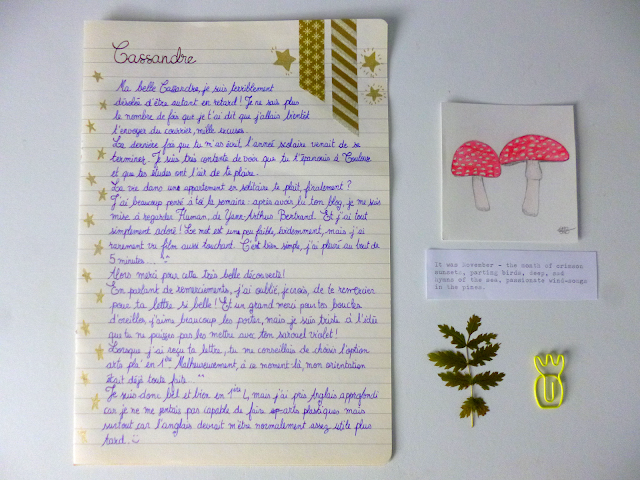 Cassandre
Ma belle Cassandre, je suis terriblement
désolée d'être autant en retard! Je ne sais plus
le nombre de fois que je t'ai dit que j'allais bientôt
t'envoyer du courrier, mille excuses.
La dernière fois que tu m'as écrit l'année scolaire venait de se
terminer. Je suis très contente de voir que tu t'épanouis à Toulouse
et que tes études ont l'air de te plaire.
La vie dans un appartement en solitaire te plaît, finalement?
J'ai beaucoup pensé à toi la semaine: après avoir lu ton blog, je me suis
mise à regarder Human, de Yann-Arthus Bertrand. Et j'ai tout
simplement adoré! Le mot est un peu faible, évidemment, mais j'ai
rarement vu film aussi touchant. C'est bien simple, j'ai pleuré au bout de
5 minutes...
Alors merci pour cette très belle découverte!
En parlant de remerciements, j'ai oublié, je crois, de te remercier
pour ta lettre si belle! Et un grand merci pour tes boucles
d'oreilles, j'aime beaucoup les porter, mais je suis triste à l'idée
que tu ne puisses pas les mettre avec ton sarouel violet!
Lorsque j'ai reçu ta lettre, tu me conseillais de choisir l'option
arts pla en 1ère. Malheureusement, à ce moment là, mon orientation
était déjà toute faite.
Je suis donc bel et bien en 1ère L, mais j'ai pris Anglais approfondi
car je ne me sentais pas capable de faire arts plastiques mais
surtout car l'anglais devrait m'être normalement assez utile plus
tard.
It was November - the month of crimson
sunsets, parting birds, deep, sad
hymns of the sea, passionate wind-songs
in the pines.